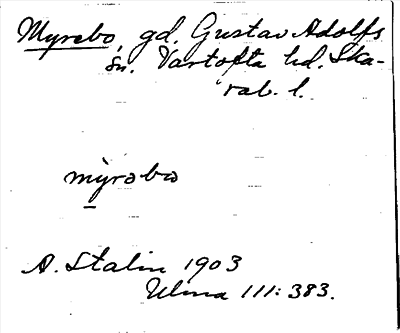 Myrebo, gd. Gustav Adolfs
sn. Vartofta hd. Ska-
rab. l.
mỳrəbo
A. Stalin 1903
Ulma 111:383.